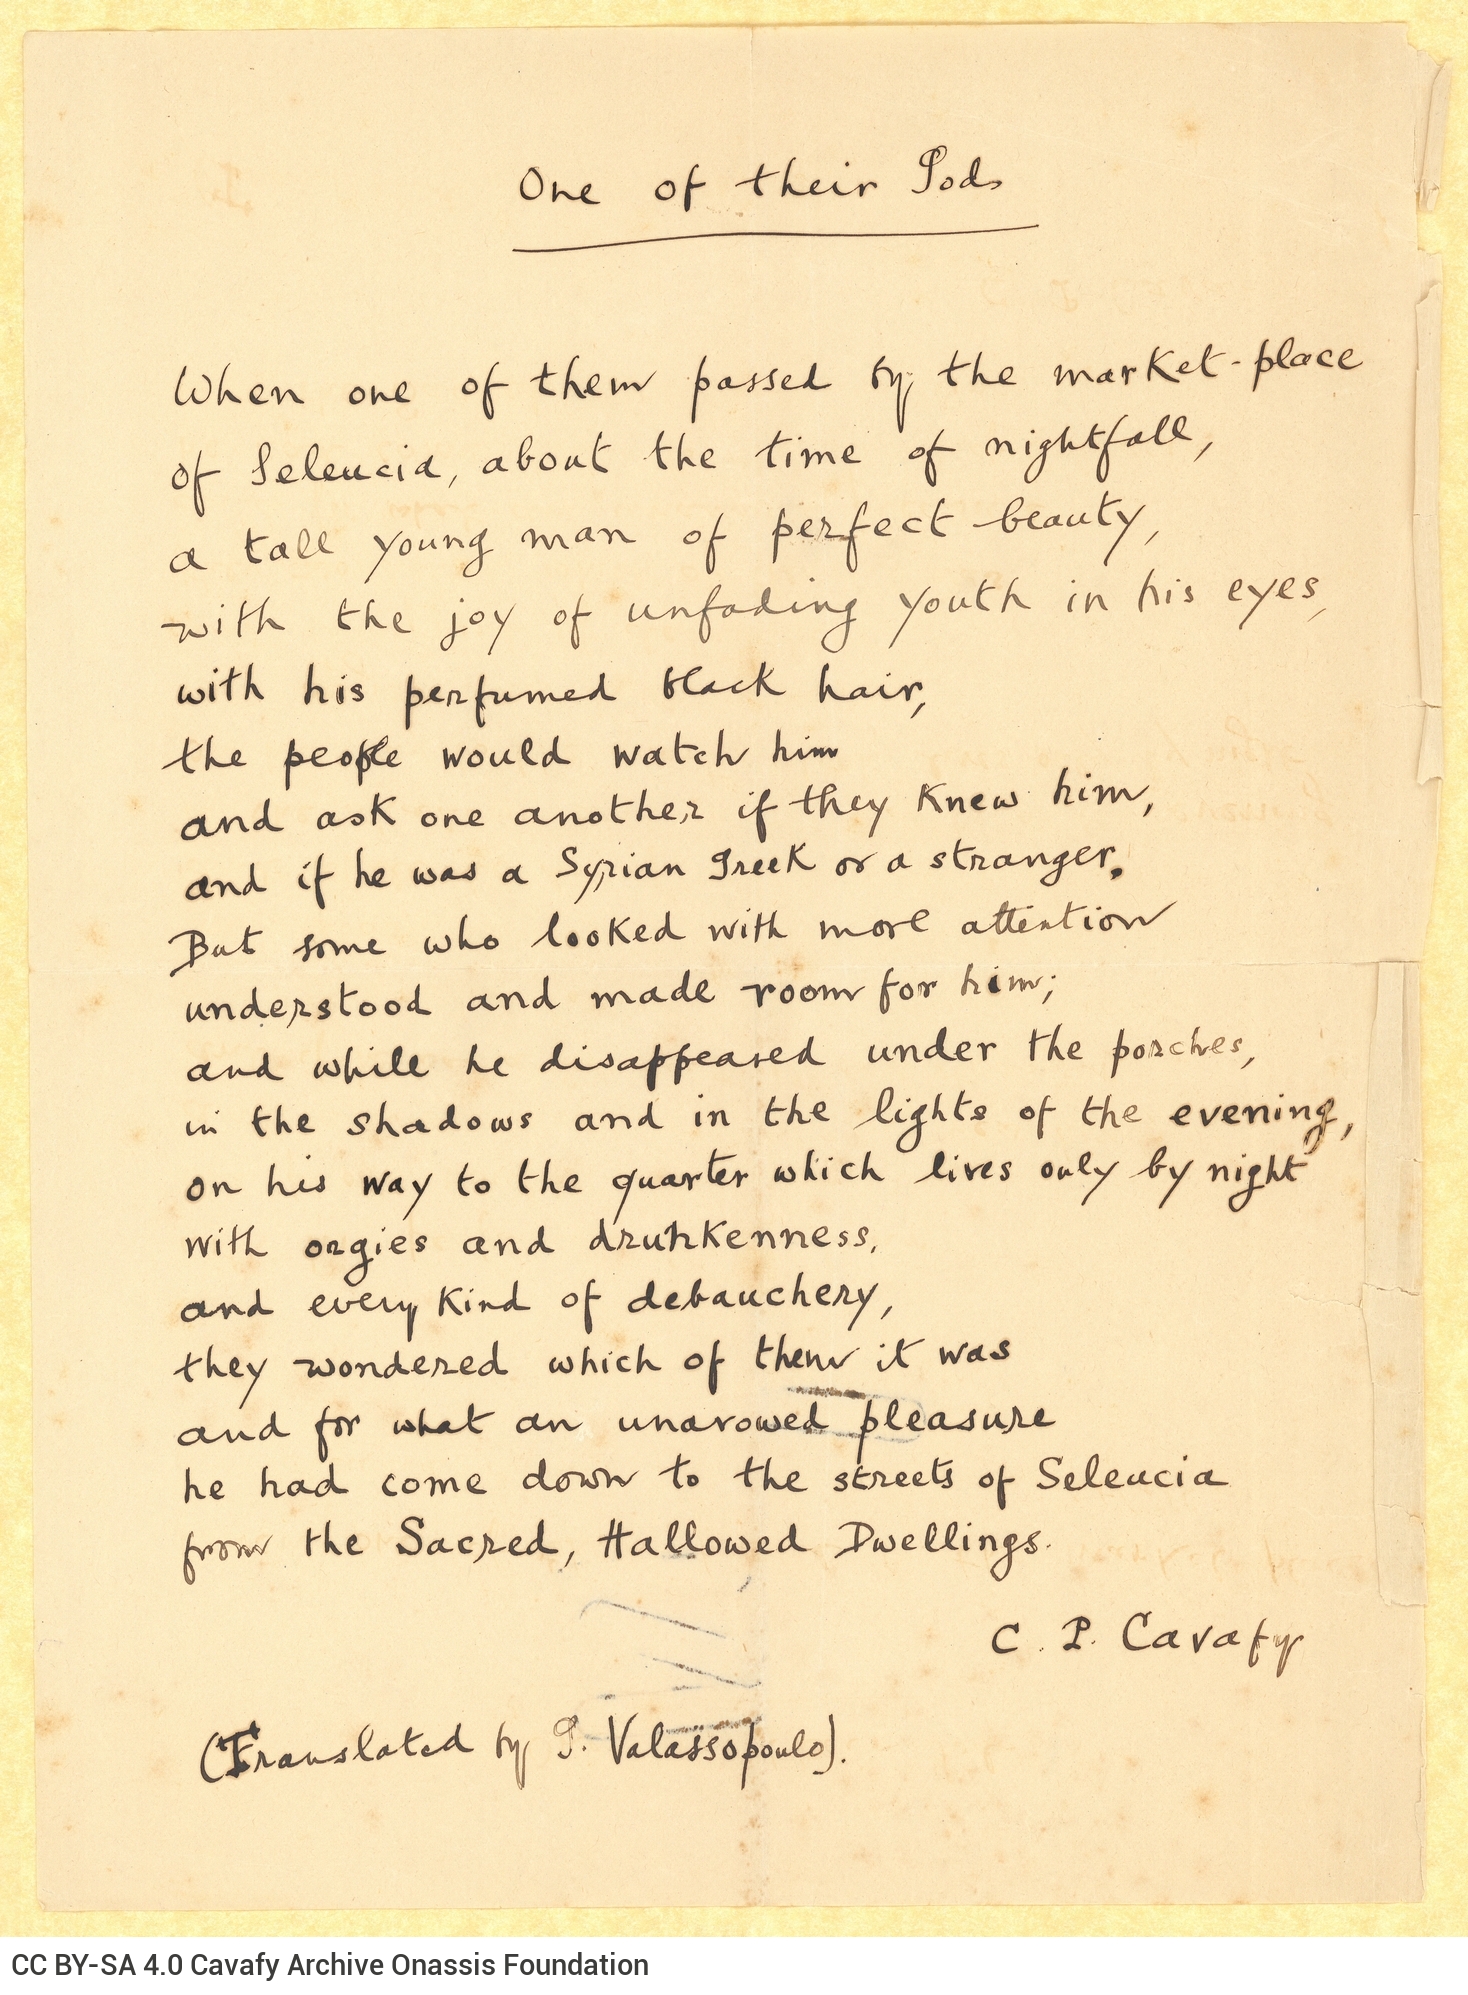 One of their Gods
When one of them passed by the market-place
of Seleucia, about the time of nightfall,
a tall young man of perfect beauty,
with the joy of unfading youth in his eyes,
with his perfumed black hair,
the people would watch him
and ask one another if they knew him,
and if he was a Syrian Greek or a stranger.
But some who looked with more attention
understood and made room for him;
and while he disappeared under the porches,
in the shadows and in the lights of the evening,
on his way to the quarter which lives only by night
with orgies and drunkenness,
and every kind of debauchery,
they wondered which of them it was
and for what an unavowed pleasure
he had come down to the streets of Seleucia
from the Sacred, Hallowed Dwellings.
C. P. Cavafy
(Translated by G. Valassopoulo).
CC BY-SA 4.0 Cavafy Archive Onassis Foundation